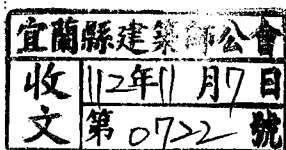 宜蘭縣建築師公會
收文
112年11月7日
第0722號